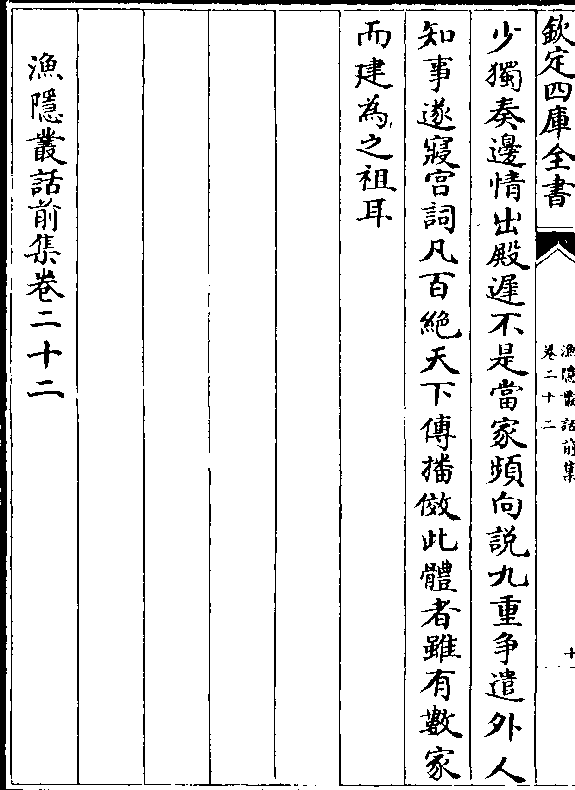 欽定四庫全書
漁隱叢話前集
卷二十二
十
少獨奏邊情出殿遲不是當家頻向説九重争遣外人
知事遂寢宫詞凡百絶天下傳播倣此體者雖有數家
而建為之祖耳
漁隱叢話前集卷二十二